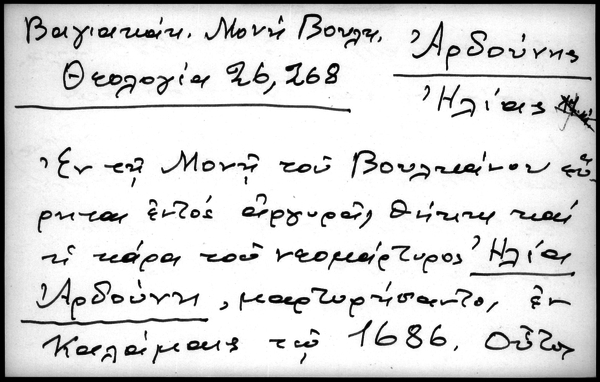 Βαγιακάκ. Μονή Βουλκ.
Θεολογία 26, 268
Ἀρδούνης
Ἠλίας
Ἐν τῇ Μονῇ τοῦ Βουλκάνου εὕ-
ρηται ἐντός ἀργυρᾶς θήκης καί
ἡ κάρα τοῦ νεομάρτυρος Ἠλία
Ἀρδούνη, μαρτυρήσαντος ἐν
Καλάμαις τῷ 1686. Οὗτος